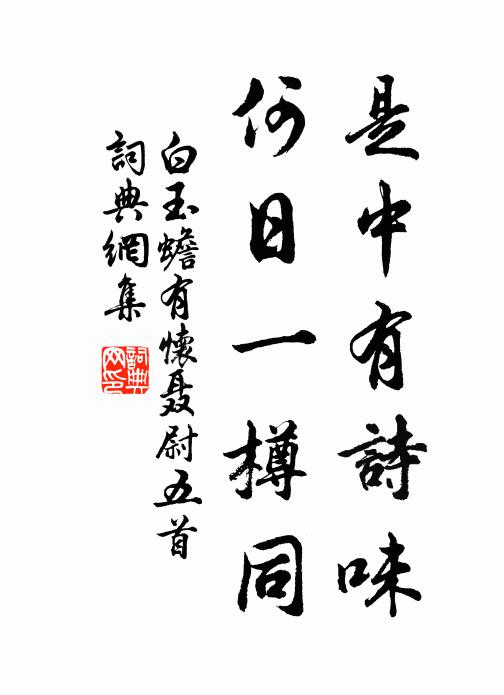 是中有詩味
何日一樽同
白玉蟾有懷聂尉五首
詞典網集
詞典网印